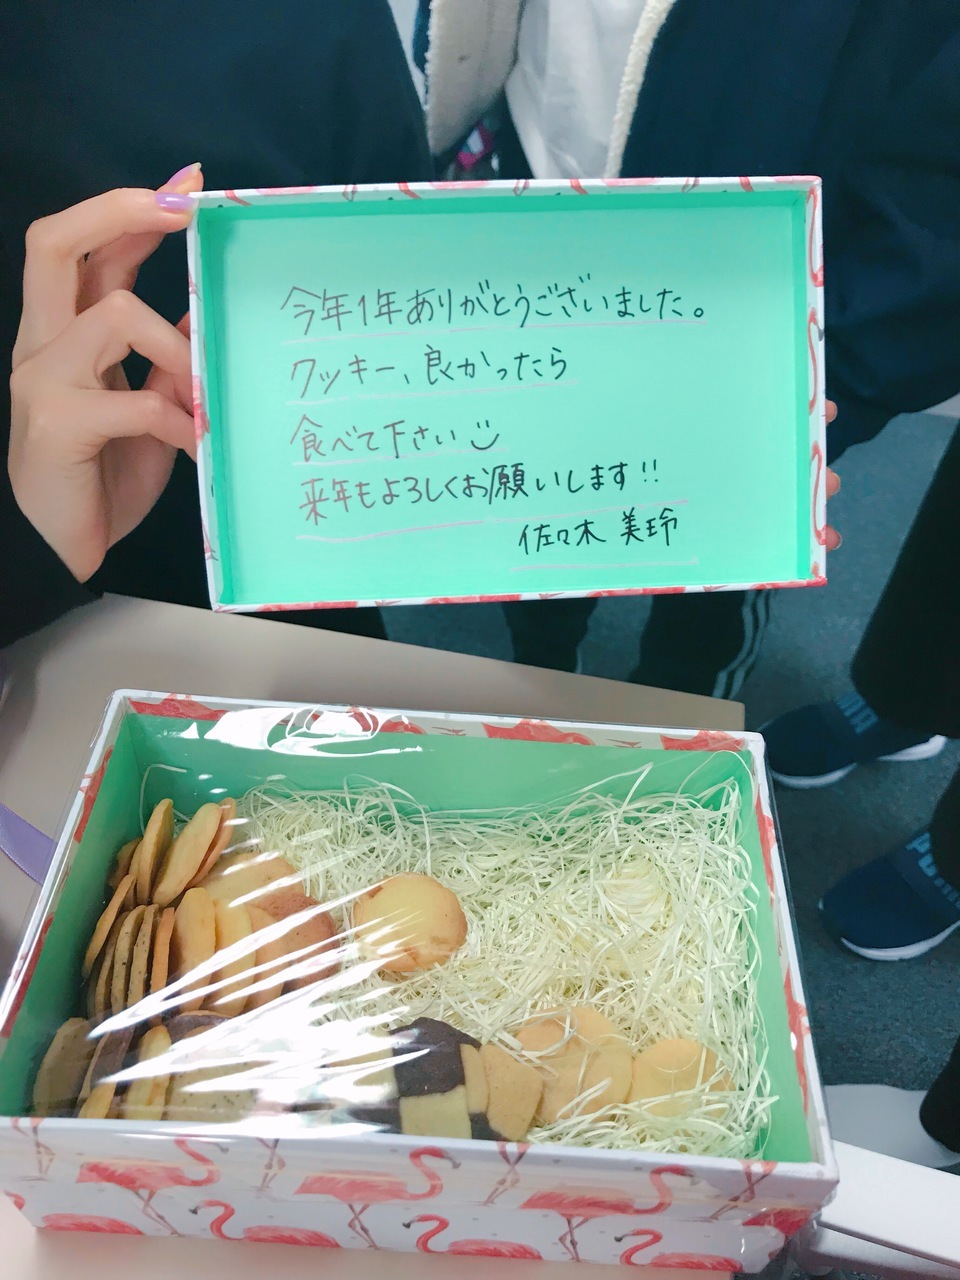 今年1年ありがとうございました。
クッキー、良かったら
食べて下さい
来年もよろしくお願いします!!
佐々木 美玲
PUMA